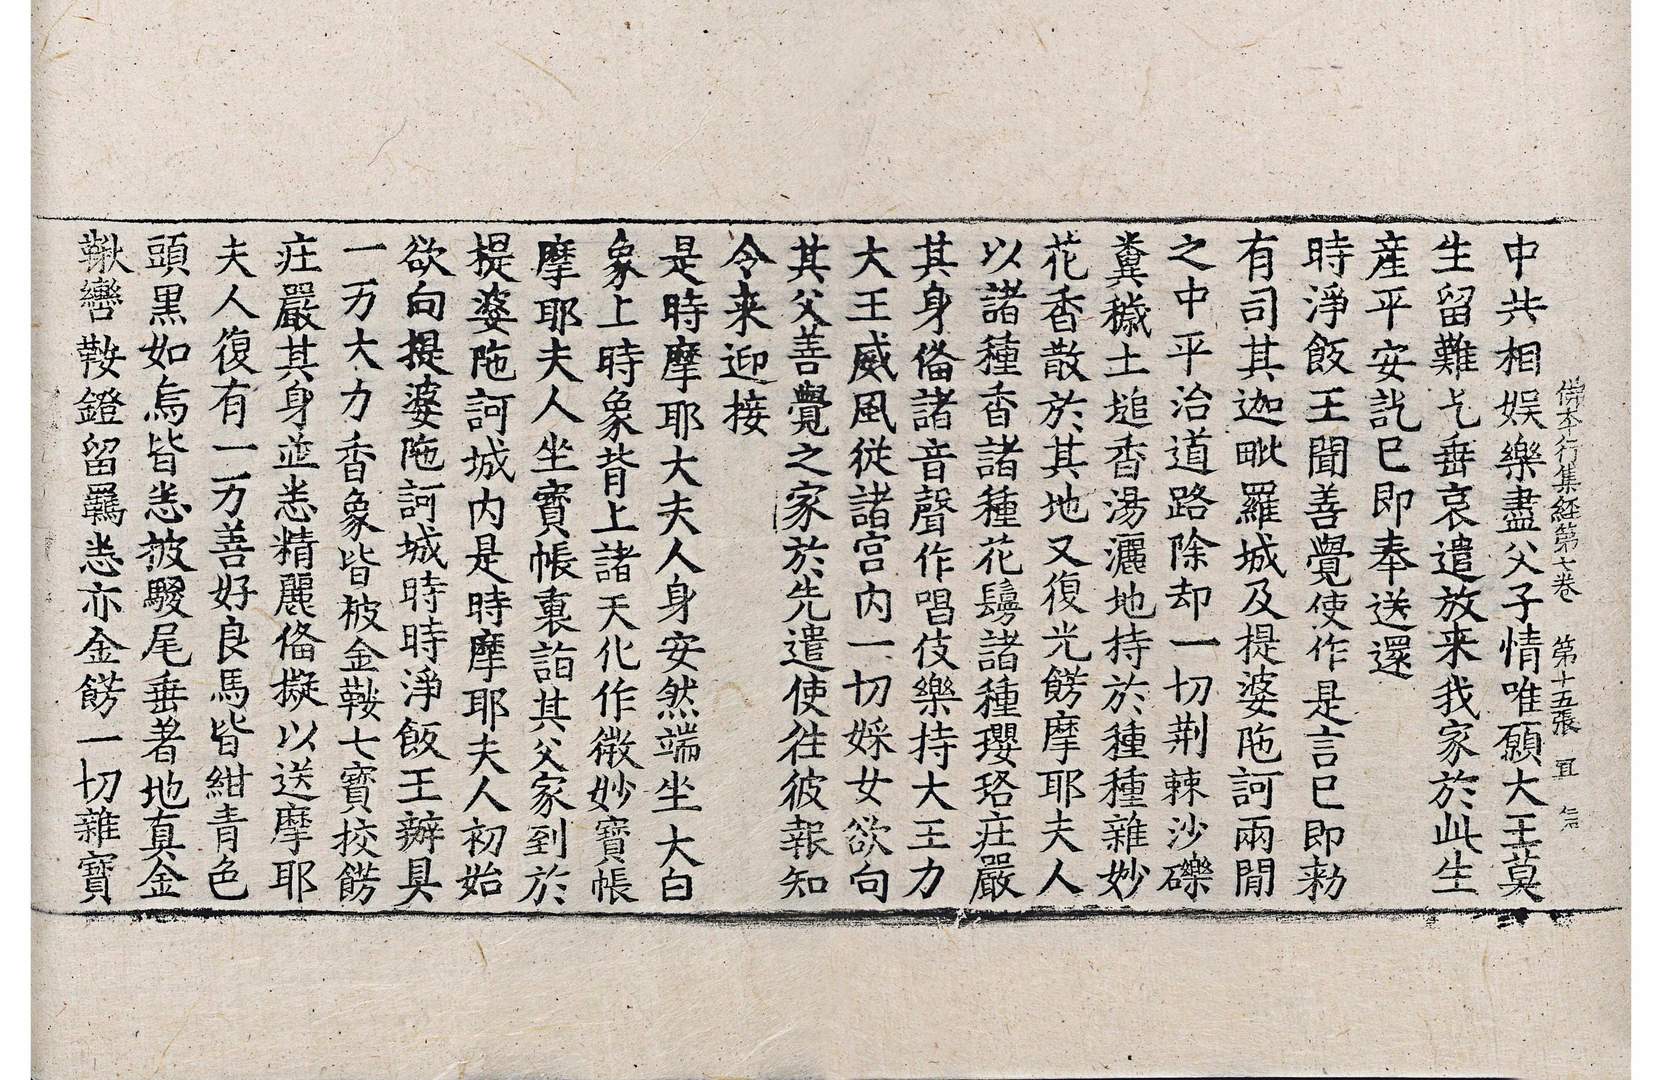 佛本行集経第七巻　第十五張　冝　信
中共相娯樂盡父子情唯願大王莫
生留難乞垂哀遣放来我家於此生
産平安訖已即奉送還
時淨飯王聞善覺使作是言已即勑
有司其迦毗羅城及提婆陁訶兩閒
之中平治道路除却一切荆棘沙礫
糞穢土塠香湯灑地持於種種雜妙
花香散於其地又復光餝摩耶夫人
以諸種香諸種花鬘諸種瓔珞莊嚴
其身俻諸音聲作唱伎樂持大王力
大王威風從諸宮內一切婇女欲向
其父善覺之家於先遣使往彼報知
令来迎接
是時摩耶大夫人身安然端坐大白
象上時象背上諸天化作微妙寶帳
摩耶夫人坐寶帳裏詣其父家到於
提婆陁訶城內是時摩耶夫人初始
欲向提婆陁訶城時時淨飯王辦具
一万大力香象皆被金鞍七寶挍餝
莊嚴其身並悉精麗俻擬以送摩耶
夫人復有一万善好良馬皆紺青色
頭黑如烏皆悉披騣尾垂著地真金
鞦轡鞍鐙留羈悉亦金餝一切雜寶